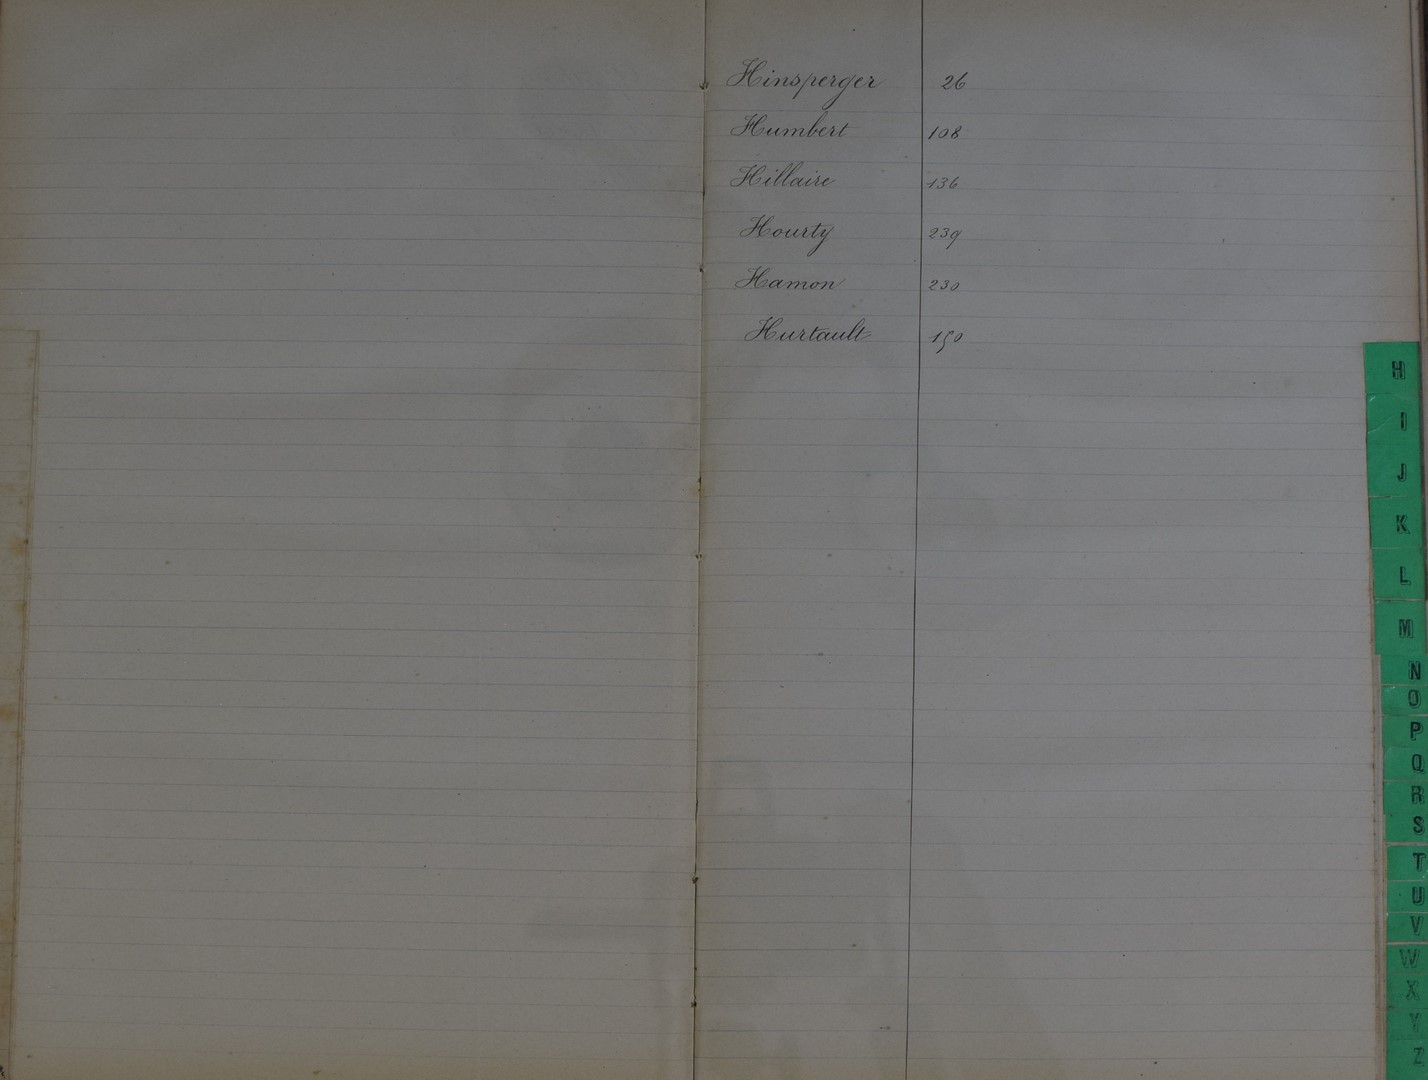 Hinsperger 26
Humbert 108
Hillaire 136
Hourty 239
Hamon 230
Hurtault 150
H
I
J
K
L
M
N
O
P
Q
R
S
T
U
V
W
X
Y
Z